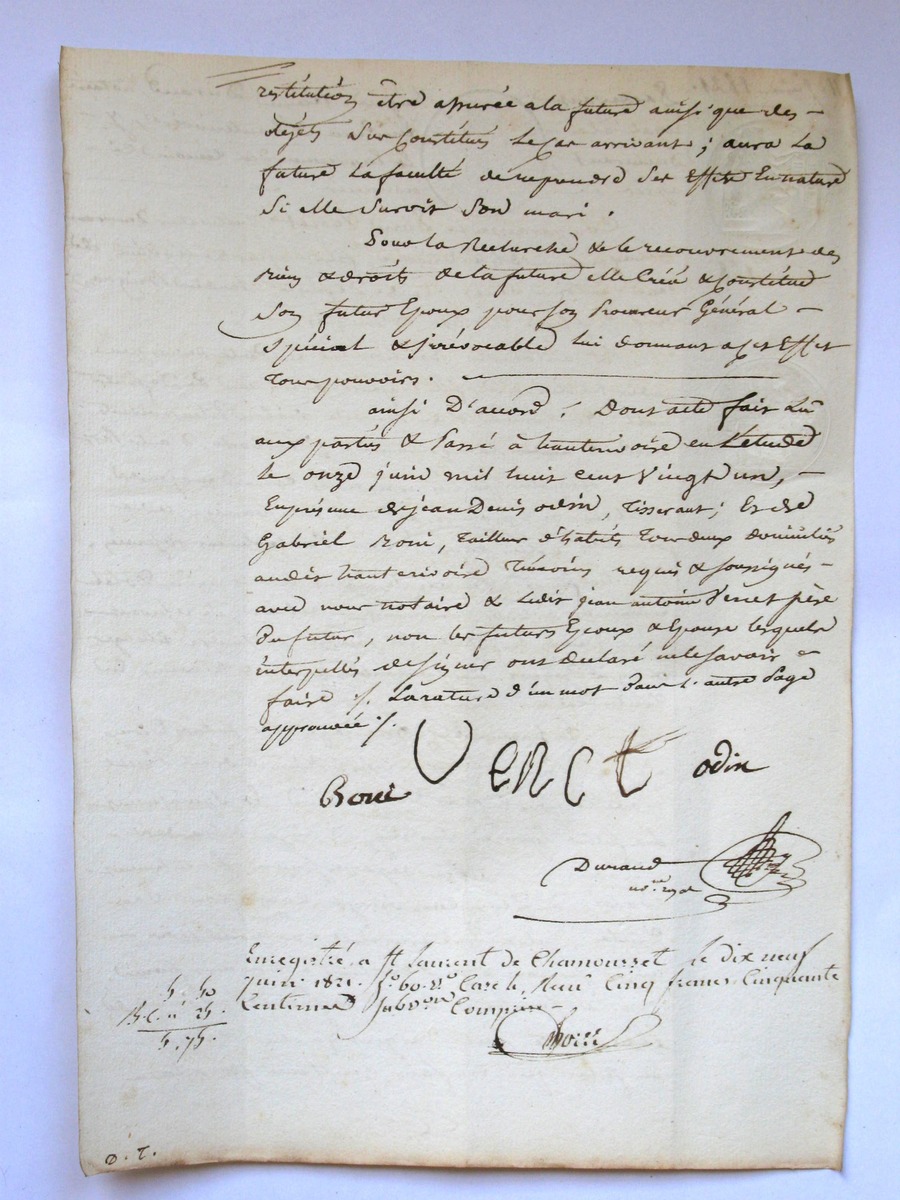 restitution être assurée a la future ainsi que des
objets sus Constitués le Cas arrivant ; aura la
future La faculté de reprendre Ses Effets En nature
Si elle Survit Son mari .
Pour la Recherche & le recouvrement des
Biens & droits de la future elle Créé & Constitue
Son futur Epoux pour Son Procureur Général
Spécial & irrévocable lui donnant a Cet Effet
Tous pouvoirs .
ainsi D'accord . Dont acte fait Lu
aux parties & Passé à hauterivoire en L'étude
le onze juin mil huit cent Vingt un ,
En présence de jean Denis odin , Tisserant ; Et de
Gabriel Roni , Tailleur d'habits Tous deux Domiciliés
audit hauterivoire Témoins requis & soussignés
avec nous notaire & Ledit jean antoine Venet père
Du futur , non les futurs Epoux & Epouse lesquels
interpellés de signer ont déclaré ne le savoir
faire ./. La rature d'un mot dans l'autre Page
approuvée ./.
Venet
odin
Durand
Enregistré a St Laurent de Chamousset le dix neuf
juin 1821. fo. 60. Vo Case 6, Reçu Cinq francs Cinquante
Centimes Subvon Comprise
5. 50
25
5. 75.